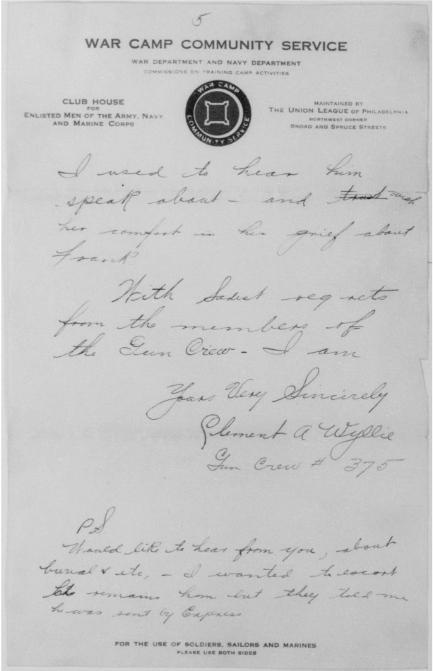 5
WAR CAMP COMMUNITY SERVICE
WAR DEPARTMENT AND NAVY DEPARTMENT
COMMISSIONS ON TRAINING CAMP ACTIVITIES
CLUB HOUSE
FOR
ENLISTED MEN OF THE ARMY, NAVY
AND MARINE CORPS
WAR CAMP
COMMUNITY SERVICE
MAINTAINED BY
THE UNION LEAGUE OF PHILADELPHIA
NORTHWEST CORNER
BROAD AND SPRUCE STREETS
I used to hear him
speak about - and trust wish
her comfort in her grief about
Frank
With Sadest regrets
from the members of
the Gun Crew - I am
Yours Very Sincerely
Clement A Wyllie
Gun Crew # 375
PS
Would like to hear from you, about
burial & etc, - I wanted to escort
remains hom but they told me
he was sent by Express
FOR THE USE OF SOLDIERS, SAILORS AND MARINES
PLEASE USE BOTH SIDES